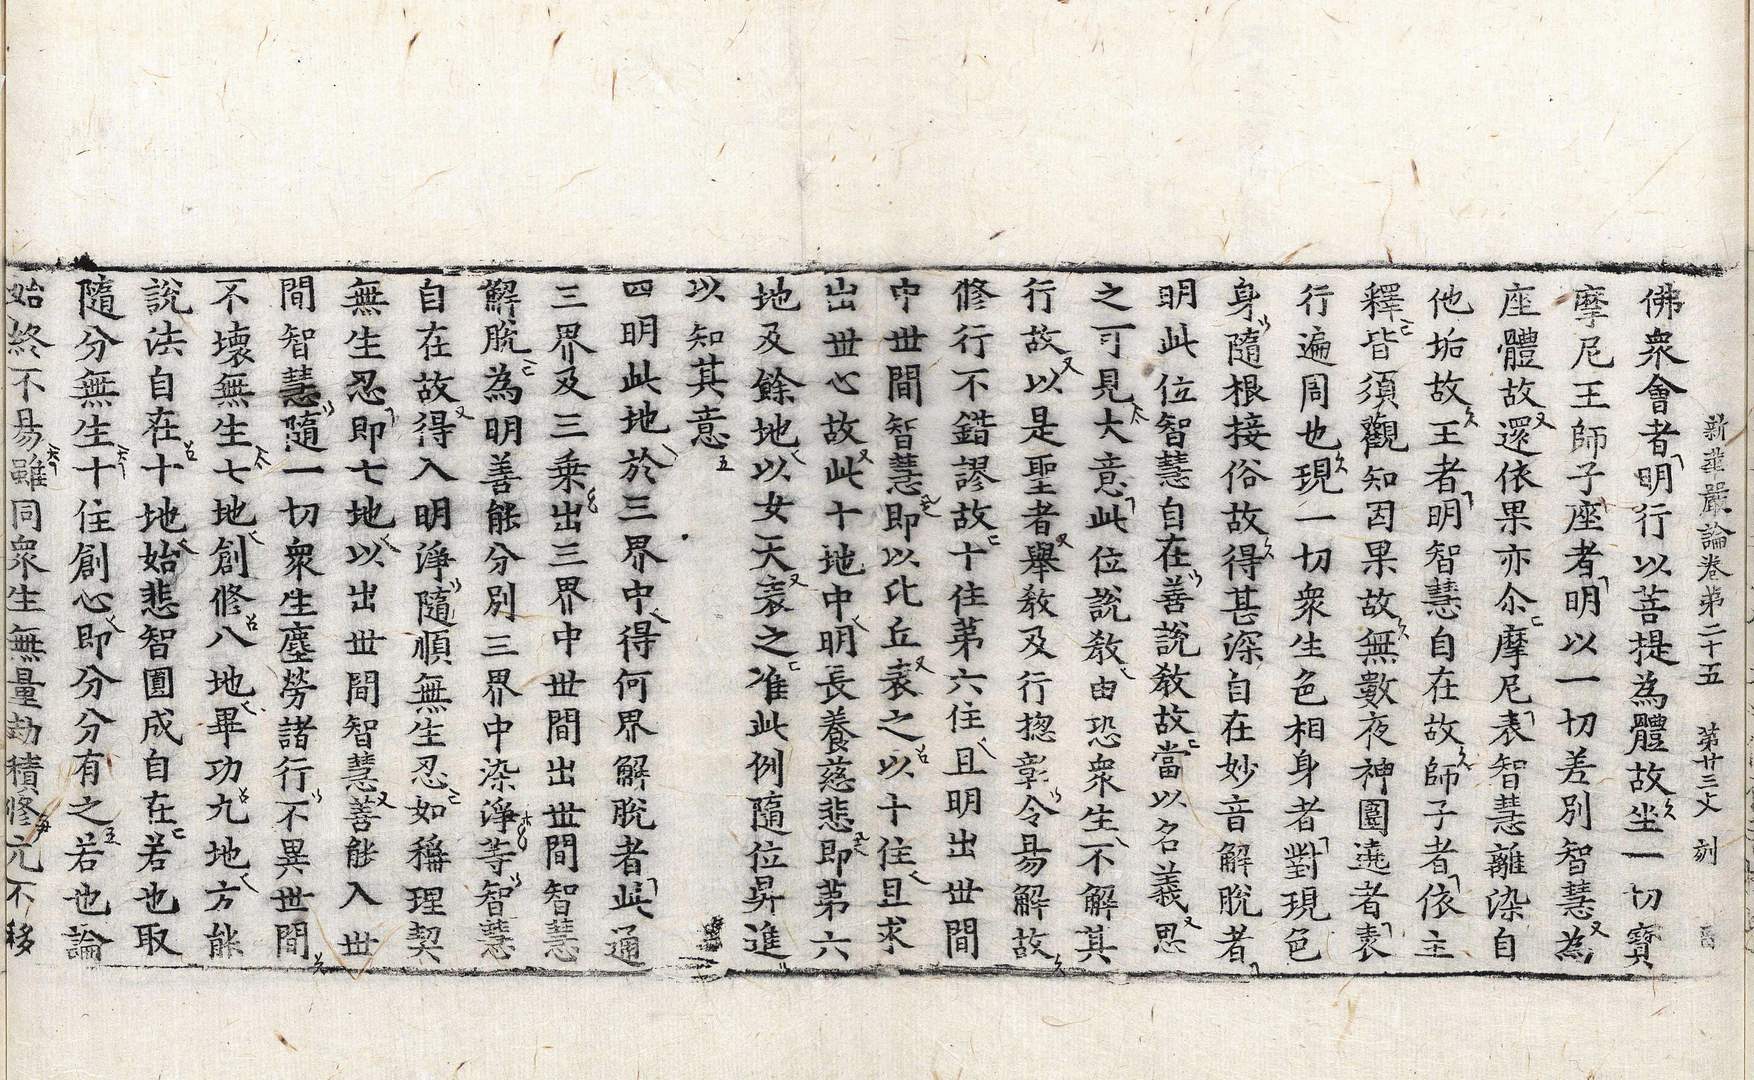 新華嚴論卷第二十五　第廿三丈　刻
佛衆會者明行以菩提為體故坐一切寶
摩尼王師子座者明以一切差別智慧為
座體故還依果亦尒摩尼表智慧離染自
他垢故王者明智慧自在故師子者依主
釋皆須觀知因果故無數夜神圍遶者表
行遍周也現一切衆生色相身者對現色
身隨根接俗故得甚深自在妙音解脫者
明此位智慧自在善說教故當以名義思
之可見大意此位說教由恐衆生不解其
行故以是聖者舉教及行揔彰令易解故
修行不錯謬故十住第六住且明出世間
中世間智慧即以比丘表之以十住且求
出世心故此十地中明長養慈悲即第六
地及餘地以女天表之准此例隨位昇進
以知其意
四明此地於三界中得何界解脫者此通
三界及三乘出三界中世間出世間智慧
解脫為明善能分別三界中染淨等智慧
自在故得入明淨隨順無生忍如稱理契
無生忍即七地以出世間智慧善能入世
間智慧隨一切衆生塵勞諸行不異世間
不壞無生七地創修八地畢功九地方能
說法自在十地始悲智圓成自在若也取
隨分無生十住創心即分分有之若也論
始終不易雖同衆生無量劫積修元不移